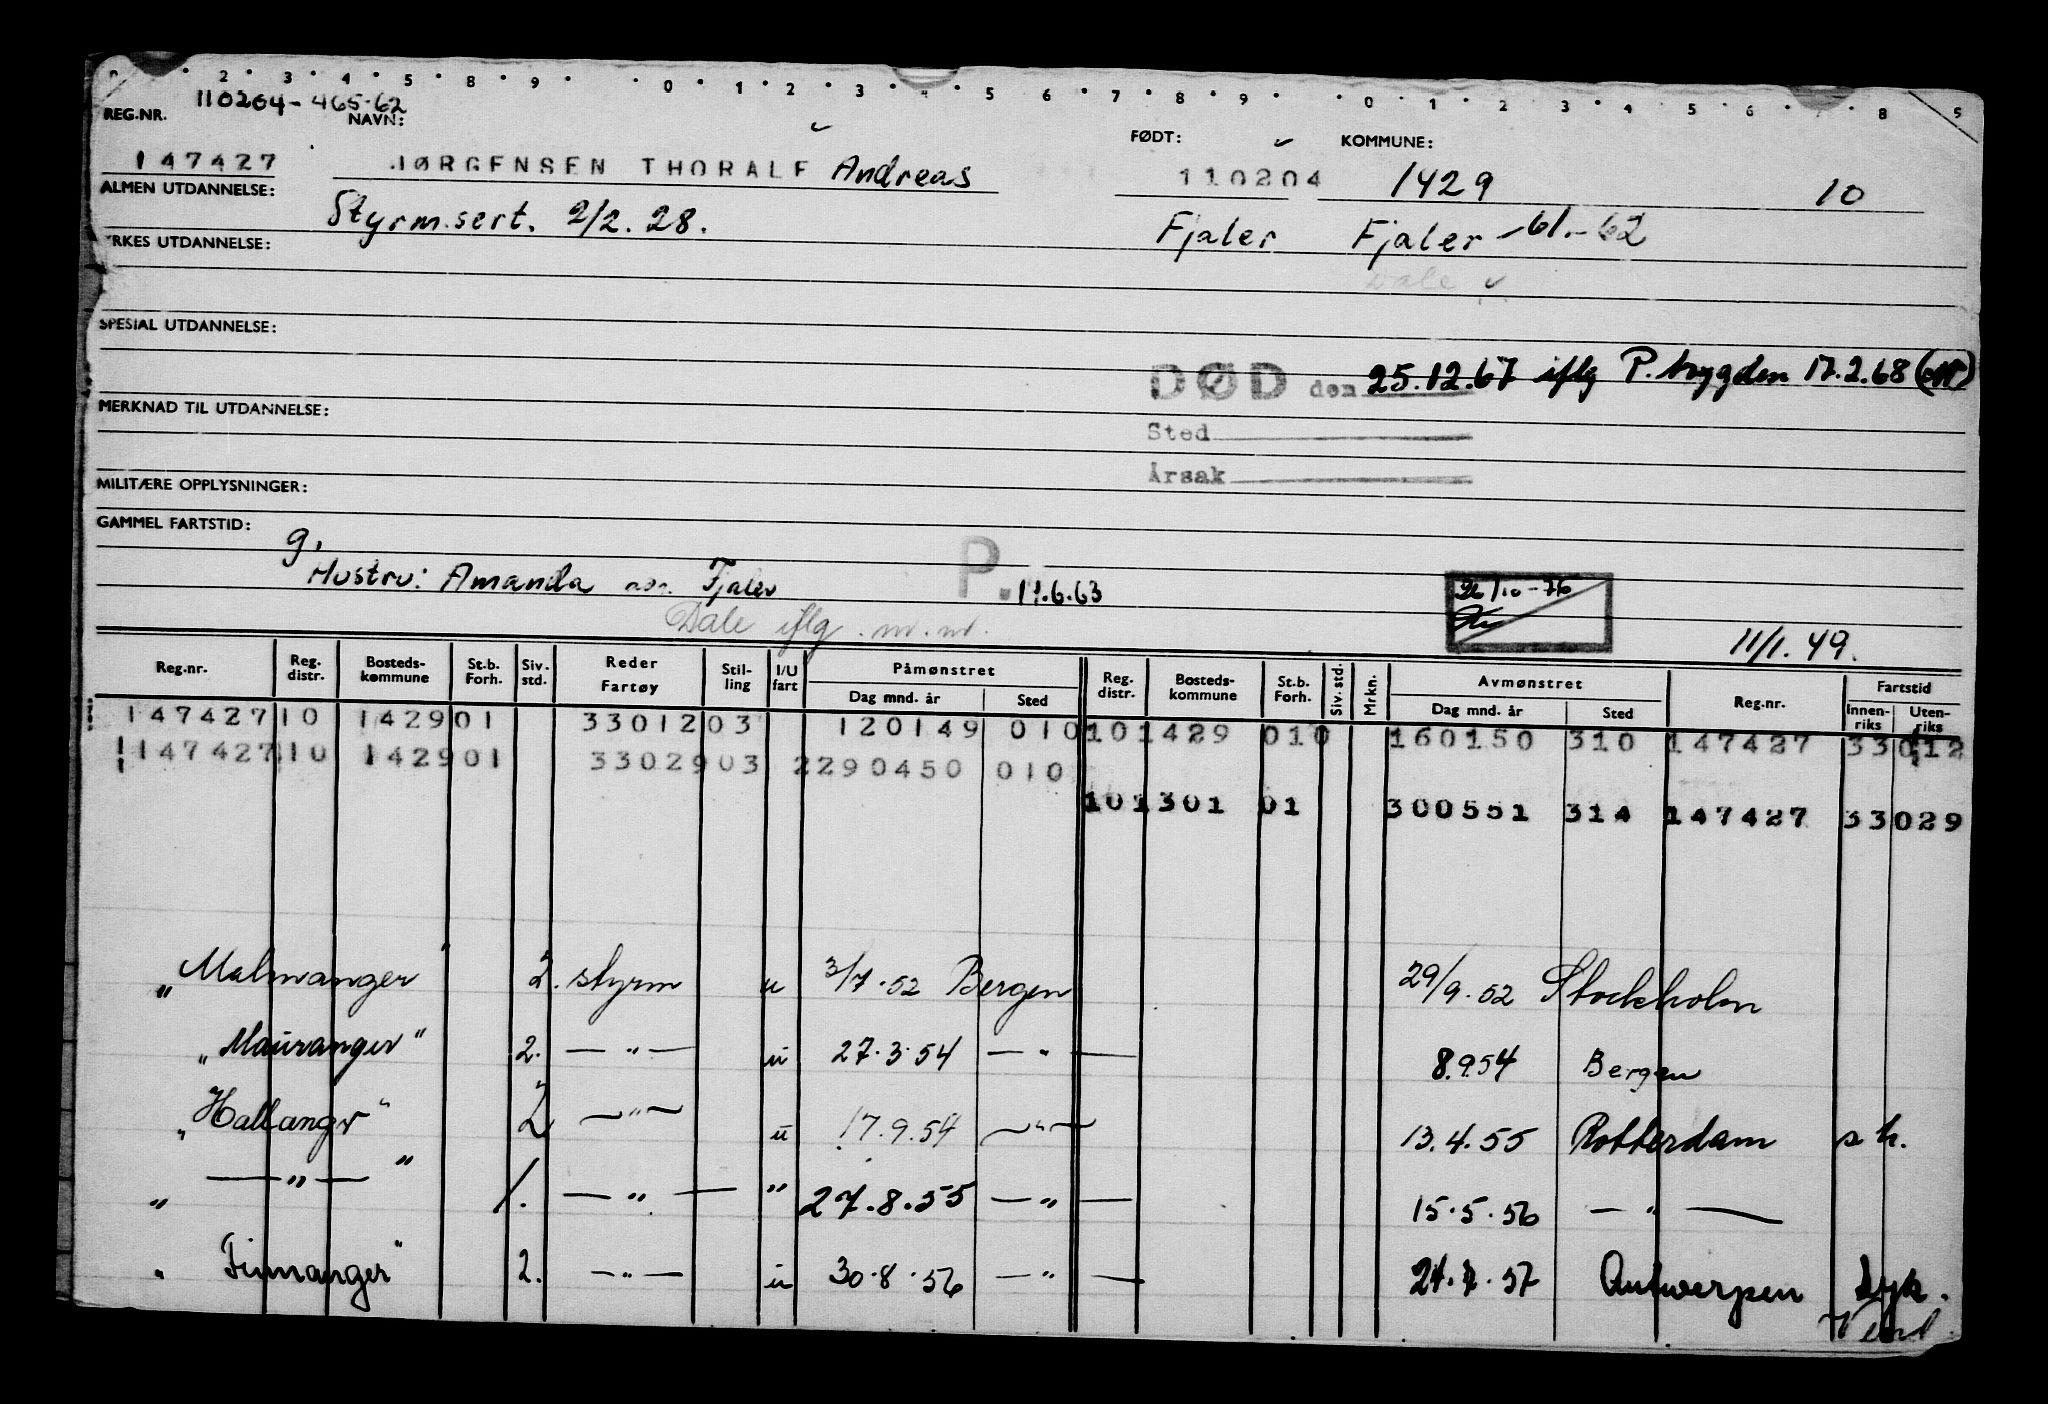 2 3 4 5 8 9 0 1 2 3 4 5 6 7 8 9 0 1 2 3 4 5 6 8 9
REG.NR. 110204-465-62
NAVN: FØDT: KOMMUNE:
147427 JØRGENSEN THORALF Andreas 110204 1429 10
ALMEN UTDANNELSE: Styrm.sert. 2/2.28. Fjaler Fjaler -61.-62
YRKES UTDANNELSE: Dale
SPESIAL UTDANNELSE:
DØD den 25.12.67 iflg P.trygden 17.2.68
MERKNAD TIL UTDANNELSE:
Sted
Årsak
MILITÆRE OPPLYSNINGER:
GAMMEL FARTSTID:
g.
Hustru: Amanda adr. Fjaler P. 11.6.63 26/10-76
Dale iflg. m.m. 11/1.49.
Reg.nr. Reg. distr. Bosteds-kommune St.b. Forh. Siv. std. Reder Fartøy Stil-ling I/U fart Påmønstret Dag mnd. år Sted Reg. distr. Bosteds-kommune St.b. Forh. Siv. std. Mrkn. Avmønstret Dag mnd. år Sted Reg.nr. Fartstid Innen-riks Uten-riks
147427 10 1429 01 33012 03 120149 010 10 1429 010 160150 310 147427 33012
147427 10 1429 01 33029 03 2 290450 010
10 1301 01 300551 314 147427 33029
„Malmanger" 2. styrm u 3/7.52 Bergen 29/9.52 Stockholm
„Mauranger" 2. —"— u 27.3.54 —"— 8.9.54 Bergen
„Hallangr" 2 —"— u 17.9.54 —"— 13.4.55 Rotterdam s h.
„ —"— " 1. —"— " 27.8.55 —"— 15.5.56 —"—
„Finnanger" 2. —"— u 30.8.56 —"— 24.7.57 Antwerpen syk.
Vend